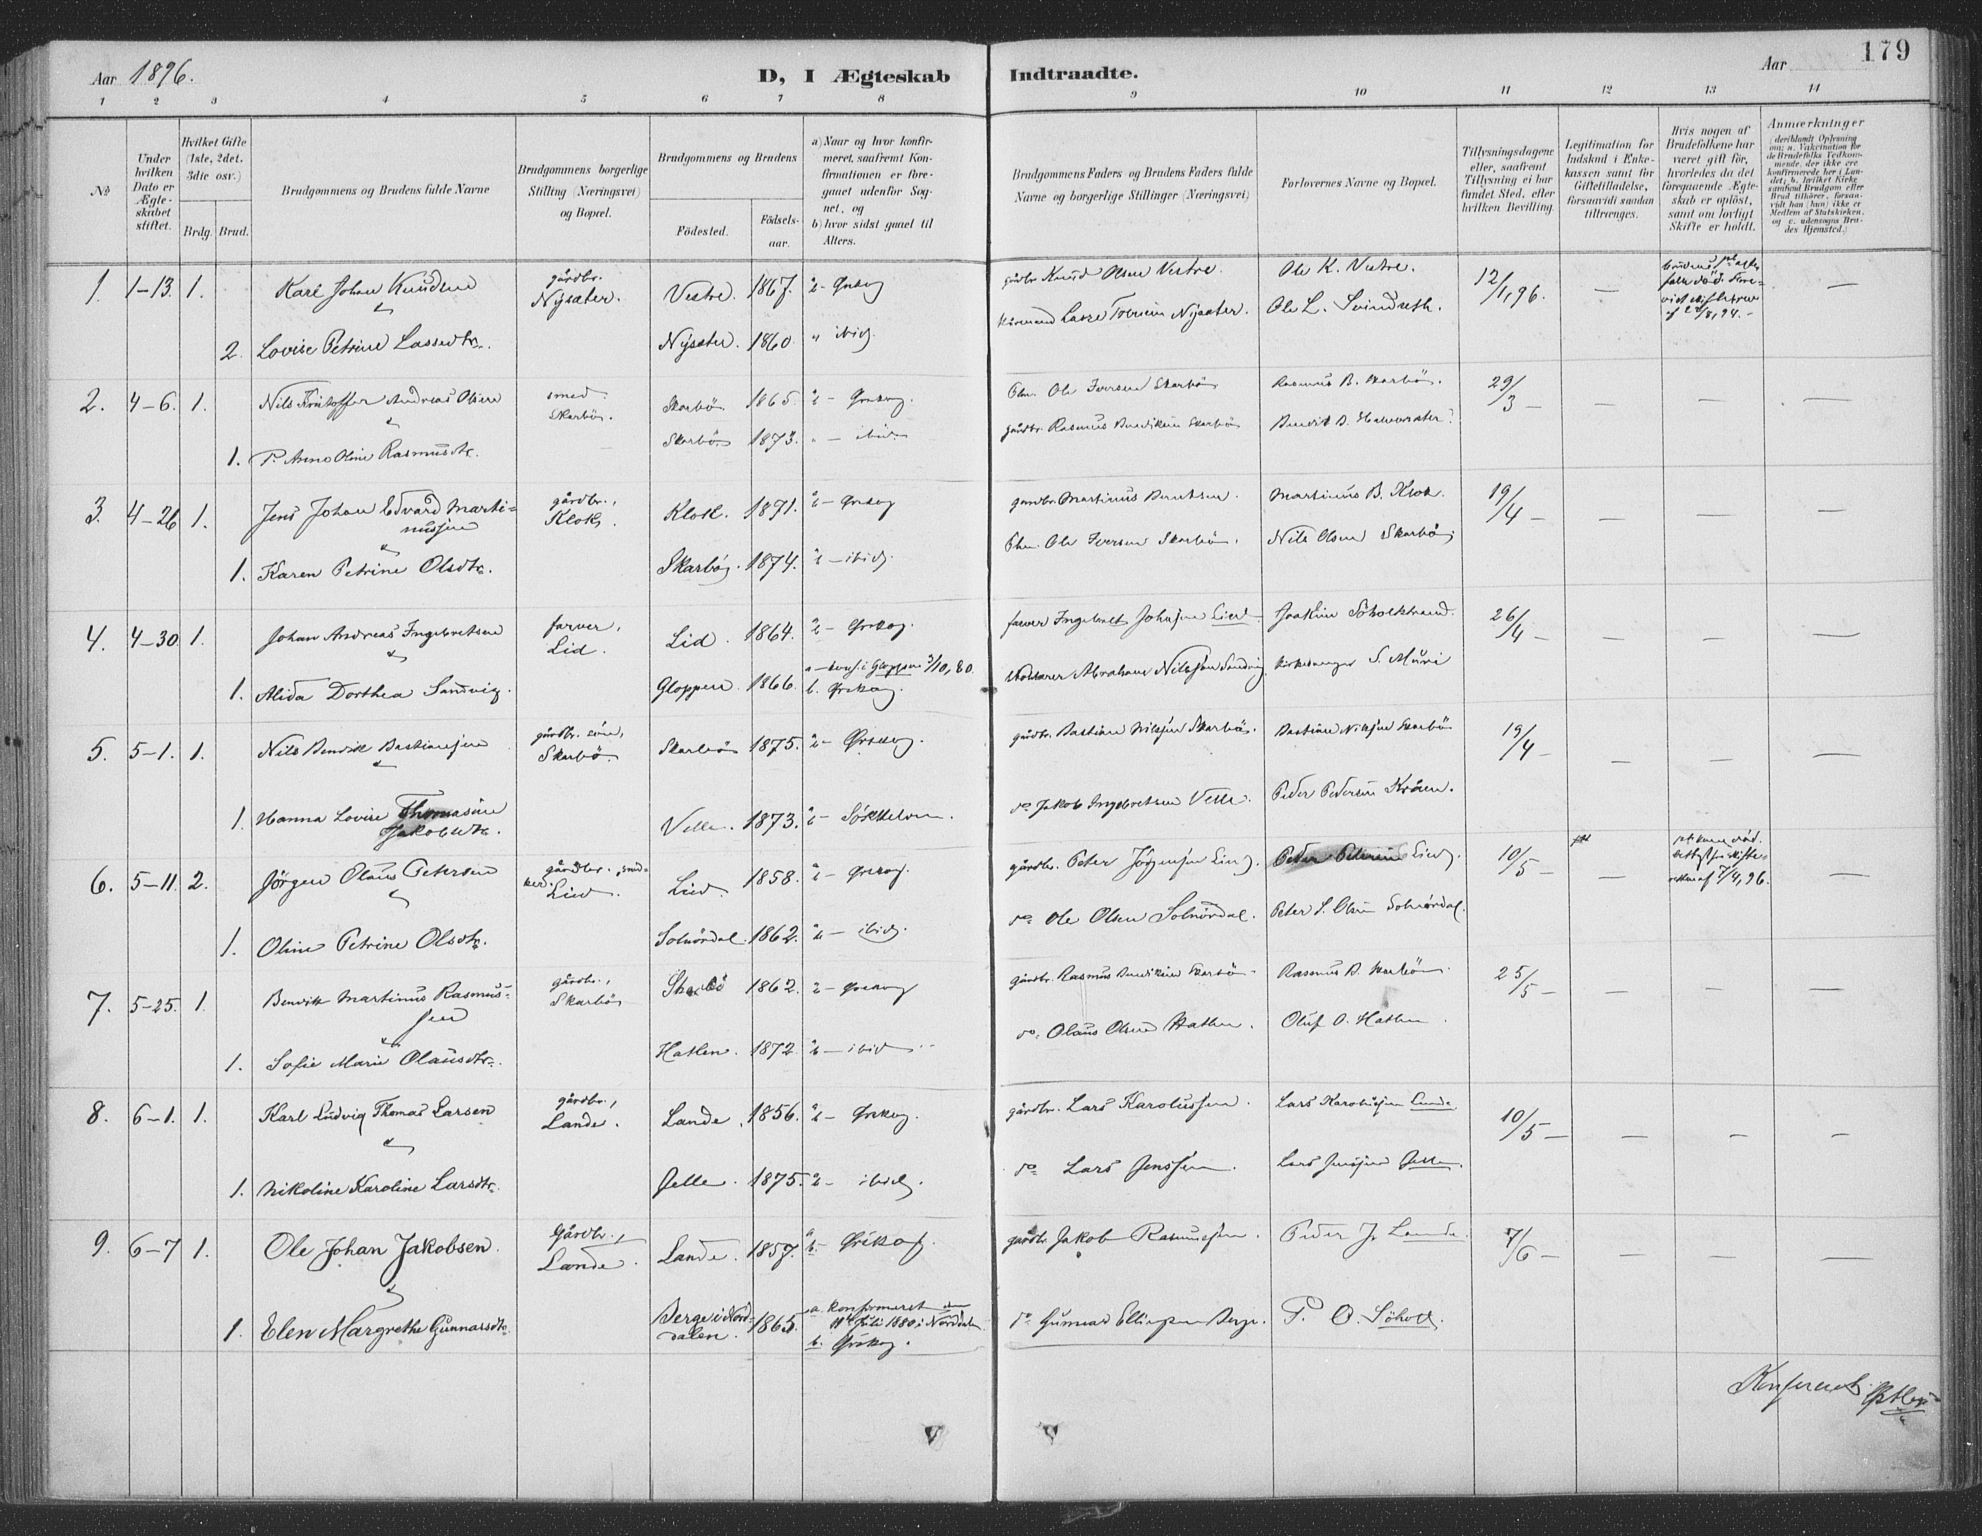 Aar 1896. D, I Ægteskab Indtraadte. Aar 179
1 2 3 4 5 6 7 8 9 10 11 12 13 14
No
Under hvilken Dato er Ægteskabet stiftet.
Hvilket Gifte (1ste, 2det, 3die osv.)
Brdg. Brud.
Brudgommens og Brudens fulde Navne
Brudgommens borgerlige Stilling (Næringsvei) og Bopæl.
Brudgommens og Brudens
Fødested. Fødselsaar.
a) Naar og hvor konfirmeret, saafremt Konfirmationen er foregaaet udenfor Sognet, og
b) hvor sidst gaaet til Alters.
Brudgommens Faders og Brudens Faders fulde Navne og borgerlige Stillinger (Næringsvei)
Forlovernes Navne og Bopæl.
Tillysningsdagene eller, saafremt Tillysning ei har fundet Sted, efter hvilken Bevilling.
Legitimation for Indskud i Enkekassen samt for Giftetilladelse, forsaavidt saadan tiltrænges.
Hvis nogen af Brudefolkene har været gift før, hvorledes da det foregaaende Ægteskab er opløst, samt om lovligt Skifte er holdt.
Anmærkninger
1. 1-13. 1. Karl Johan Knudsen gårdbr. Nysæter. Vestre. 1867. Ørskog gårdbr. Knud Olsen Vestre. Ole K. Vestre. 12/1, 96. —
2. Lovise Petrine Lassedtr. Nysæter. 1860. ibid. Nysæter. Ole L. Svindseth.
2. 4-6. 1. Nils Kristoffer Andreas Olsen smed Skarbø. Skarbø 1865. Ørskog. Ole Iversen Skarbø Rasmus B. Skarbø. 29/3 — — — —
1. Anne Oline Rasmusdtr. Skarbø 1873. — ibid. gårdbr. Rasmus Bendiksen Skarbø
3. 4-26 1. Jens Johan Edvard Martinussen gårdbr., Klok. Klok. 1871. Ørskog gårdbr. Martinus Bentsen. Martinus B. Klok. 19/4 — — — —
1. Karen Petrine Olsdtr. Skarbø. 1874. — ibid. Ole Iversen Skarbø. Nils Olsen Skarbø
4. 4-30 1. Johan Andreas Ingebretsen farver, Lid. Lid. 1864. Ørskog. farver Ingebret Johnsen Lied Joakim Søholtstrand. 26/4 — — — —
1. Alida Dorthea Sandvig. Gloppen. 1866. a — konf. i Gloppen 3/10, 80. b. Ørskog. Abraham Nilssen Sandvig kirkesanger S. Muri
5. 5-1. 1. Nils Bendik Bastiansen gårdbr. søn, Skarbø. Skarbø 1875. Ørskog. gårdbr. Bastian Nilssen Skarbø. Bastian Nilssen Skarbø 19/4 — — — —
1. Hanna Lovise Thomasine Jakobsdtr. Velle. 1873. do Jakob Ingebretsen Velle. Peder Pedersen
6. 5-11. 2. Jørgen Olaus Petersen gårdbr., Lied. Lied. 1858. Ørskog. gårdbr. Peter Jørgensen Lied. Peder Pedersen Lied. 10/5 — — 7/4, 96. —
1. Oline Petrine Olsdtr. Solnørdal. 1862. — ibid. do Ole Olsen Solnørdal. Peter S. Olsen Solnørdal.
7. 5-25. 1. Bendik Martinus Rasmussen gårdbr., Skarbø Skarbø 1862. Ørskog gårdbr. Rasmus Bendiksen Skarbø Rasmus B. Skarbø 25/5 — — — —
1. Sofie Marie Olausdtr. Hatlen. 1872. — ibid do. Olaus Olsen Hatlen. Oluf O. Hatlen.
8. 6-1. 1. Karl Ludvig Thomas Larsen gårdbr., Lande. Lande. 1856. Ørskog. gårdbr. Lars Karolussen. Lars Karolussen Lande 10/5 — — — —
1. Nikoline Karoline Larsdtr. Jelle. 1875. — ibid. do Lars Jenssen. Lars Jenssen Jelle.
9. 6-7 1. Ole Johan Jakobsen. Gårdbr., Lande. Lande. 1857. Ørskog. gårdbr. Jakob Rasmussen. Peder J. Lande. 7/6 — — — —
1. Elen Margrethe Gunnarsdtr. Berge i Norddalen. 1865. a. konfirmeret den juli 1880 i Norddalen b. Ørskog. do Gunnar Ellingsen Berge. P. O. Søholt.
Konfereret